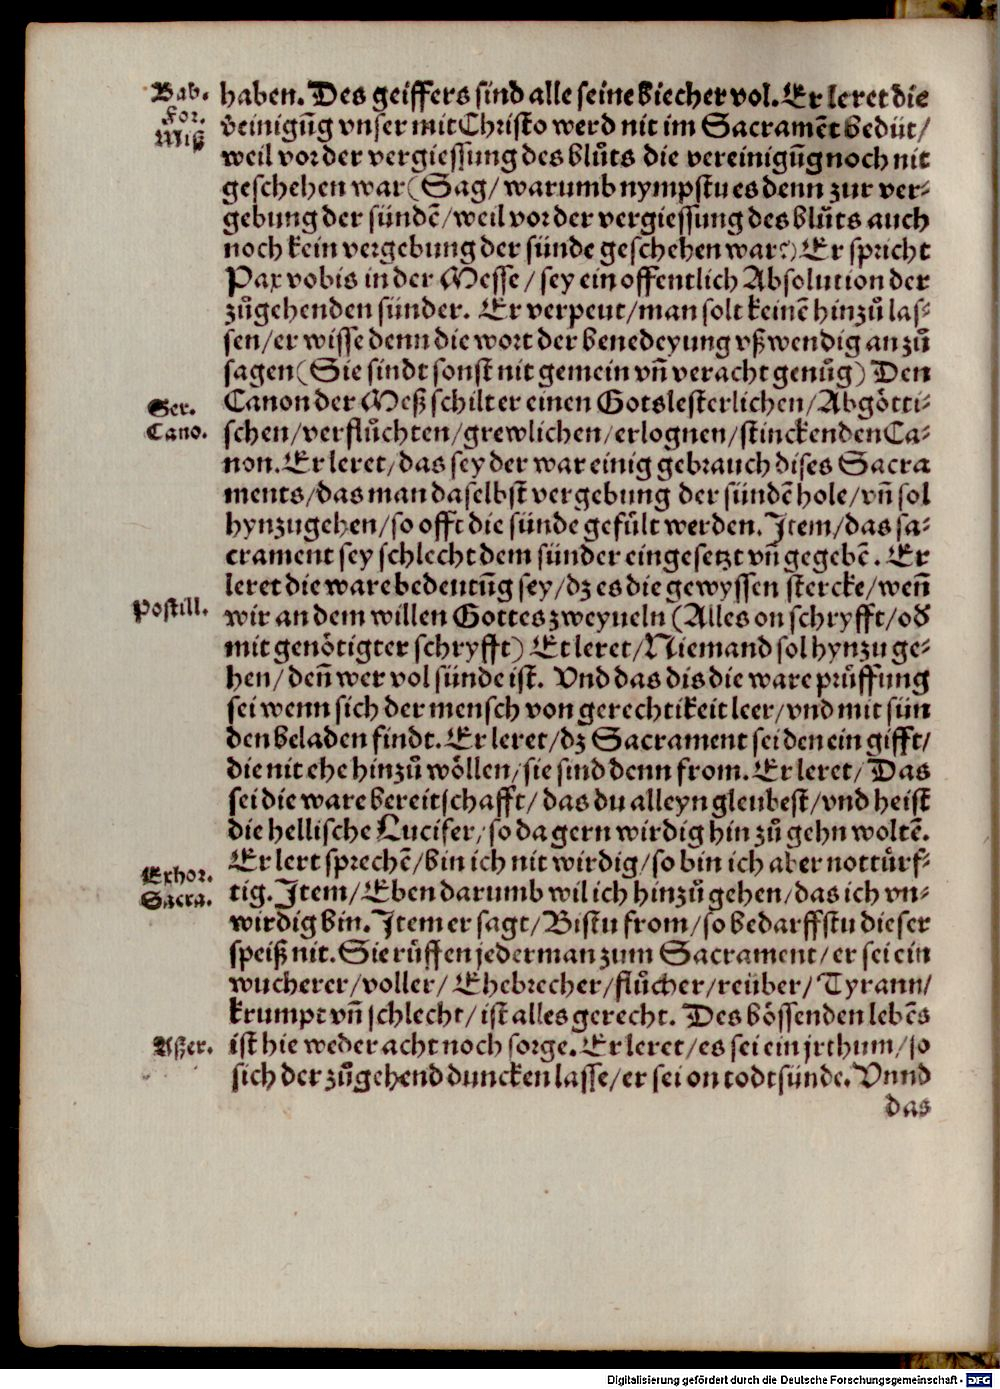 Bab.
For.
Miß
haben. Des geiffers sind alle seine biecher vol. Er leret die
veinigūg vnser mit Christo werd nit im Sacramēt bedüt/
weil vor der vergiessung des blůts die vereinigūg noch nit
geschehen war (Sag/ warumb nympstu es denn zur ver-
gebung der sündē/ weil vor der vergiessung des blůts auch
noch kein vergebung der sünde geschehen war?) Er spricht
Pax vobis in der Messe/ sey ein offentlich Absolution der
zůgehenden sünder. Er verpeut/ man solt keinē hinzů las-
sen/ er wisse denn die wort der benedeyung vßwendig an zů
sagen (Sie sindt sonst nit gemein vn̄ veracht genůg) Den
Ser.
Cano.
Canon der Meß schilt er einen Gotslesterlichen/ Abgötti-
schen/ verflůchten/ grewlichen/ erlognen/ stinckenden Ca-
non. Er leret/ das sey der war einig gebrauch dises Sacra
ments/ das man daselbst vergebung der sündē hole/ vn̄ sol
hynzugehen/ so offt die sünde gefült werden. Item/ das sa-
crament sey schlecht dem sünder eingesetzt vn̄ gegebē. Er
leret die ware bedeutūg sey/ dz es die gewyssen stercke/ wen̄
Postill.
wir an dem willen Gottes zweyueln (Alles on schryfft/ od
mit genötigter schryfft) Et leret/ Niemand sol hynzu ge-
hen/ den̄ wer vol sünde ist. Vnd das dis die ware průffung
sei wenn sich der mensch von gerechtikeit leer/ vnd mit sün
den beladen findt. Er leret/ dz Sacrament sei den ein gifft/
die nit ehe hinzů wöllen/ sie sind denn from. Er leret/ Das
sei die ware bereitschafft/ das du alleyn gleubest/ vnd heist
die hellische Lucifer/ so da gern wirdig hin zů gehn woltē.
Exhor.
Sacra.
Er lert sprechē/ bin ich nit wirdig/ so bin ich aber nottürf-
tig. Item/ Eben darumb wil ich hinzů gehen/ das ich vn-
wirdig bin. Item er sagt/ Bistu from/ so bedarffstu dieser
speiß nit. Sie růffen jederman zum Sacrament/ er sei ein
wucherer/ voller/ Ehebrecher/ flůcher/ reüber/ Tyrann/
krumpt vn̄ schlecht/ ist alles gerecht. Des bössenden lebēs
Aßer.
ist hie weder acht noch sorge. Er leret/ es sei ein jrthum/ so
sich der zůgehend duncken lasse/ er sei on todtsünde. Vnnd
das
Digitalisierung gefördert durch die Deutsche Forschungsgemeinschaft - DFG